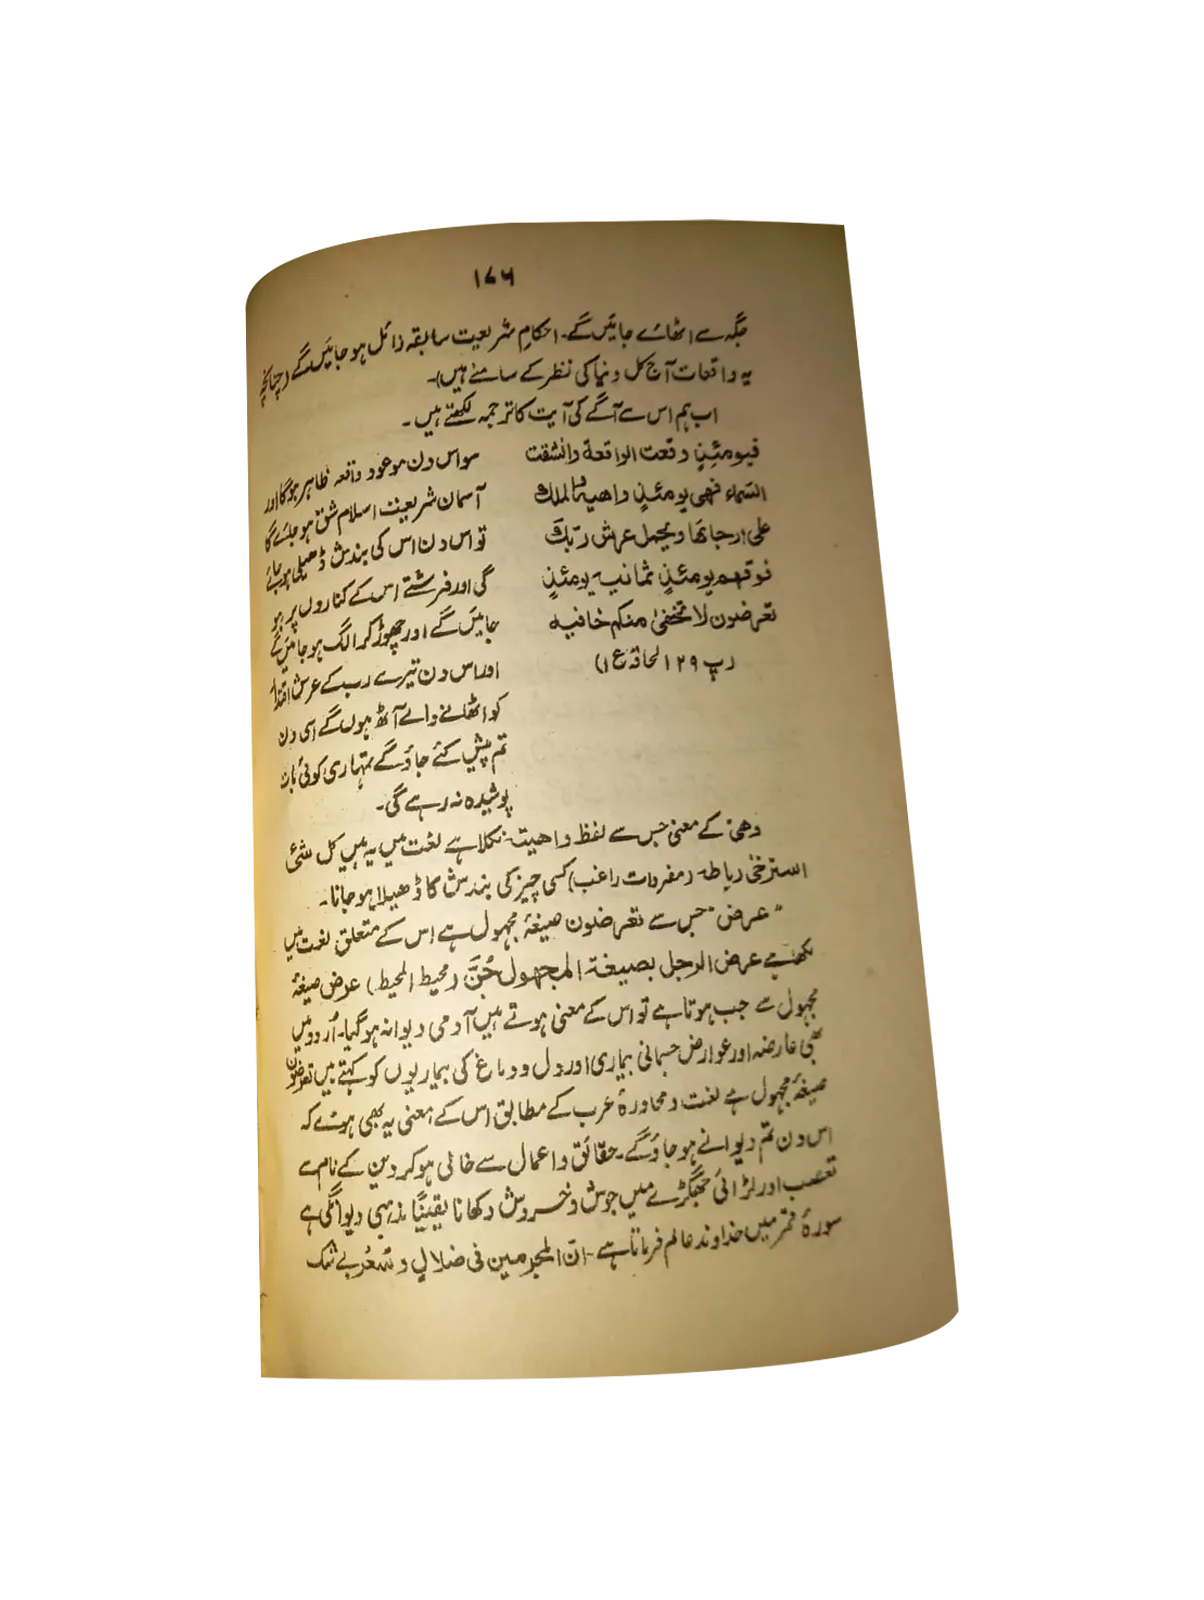 ۱۷۶
جگہ سے اٹھائے جائیں گے۔ احکامِ شریعت سابقہ زائل ہو جائیں گے (چنانچہ
یہ واقعات آج کل دنیا کی نظر کے سامنے ہیں)۔
اب ہم اس سے آگے کی آیت کا ترجمہ لکھتے ہیں۔
فیومئذٍ وقعت الواقعة وانشقت
السّماء فھی یومئذٍ واھیة والملك
علی ارجائھا ویحمل عرش ربّك
فوقھم یومئذٍ ثمانیه یومئذٍ
تعرضون لا تخفیٰ منکم خافیه
(پ ۲۹ الحاقہ ع ۱)
سو اس دن موعود واقعہ ظاہر ہوگا اور
آسمان شریعت اسلام شق ہو جائے گا
تو اس دن اس کی بندش ڈھیلی ہو جائے
گی اور فرشتے اس کے کناروں پر ہو
جائیں گے اور چھوڑ کر الگ ہو جائیں گے
اور اس دن تیرے رب کے عرش اقتدار
کو اٹھانے والے آٹھ ہوں گے اسی دن
تم پیش کئے جاؤ گے تمہاری کوئی بات
پوشیدہ نہ رہے گی۔
وھیٰ کے معنی جس سے لفظ واھیت نکلا ہے لغت میں یہ ہیں کل شئ
استرخیٰ رباطہ (مفردات راغب) کسی چیز کی بندش کا ڈھیلا ہو جانا۔
"عرض" جس سے تعرضون صیغۂ مجہول ہے اس کے متعلق لغت میں
لکھا ہے عرض الرجل بصیغة المجھول جُنَّ (محیط المحیط) عرض صیغۂ
مجہول سے جب ہوتا ہے تو اس کے معنی ہوتے ہیں آدمی دیوانہ ہو گیا۔ اُردو میں
بھی عارضہ اور عوارض جسمانی بیماری اور دل و دماغ کی بیماریوں کو کہتے ہیں تعرضون
صیغۂ مجہول ہے لغت و محاورۂ عرب کے مطابق اس کے معنی یہ بھی ہوئے کہ
اس دن تم دیوانے ہو جاؤ گے۔ حقائق و اعمال سے خالی ہو کر دین کے نام سے
تعصب اور لڑائی جھگڑے میں جوش و خروش دکھانا یقیناً مذہبی دیوانگی ہے
سورۂ قمر میں خداوند عالم فرماتا ہے۔ انّ المجرمین فی ضلالٍ وسُعُر بے شک